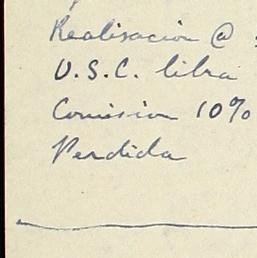 Realisacion @
U.S.C. libra
Comision 10%
Perdida